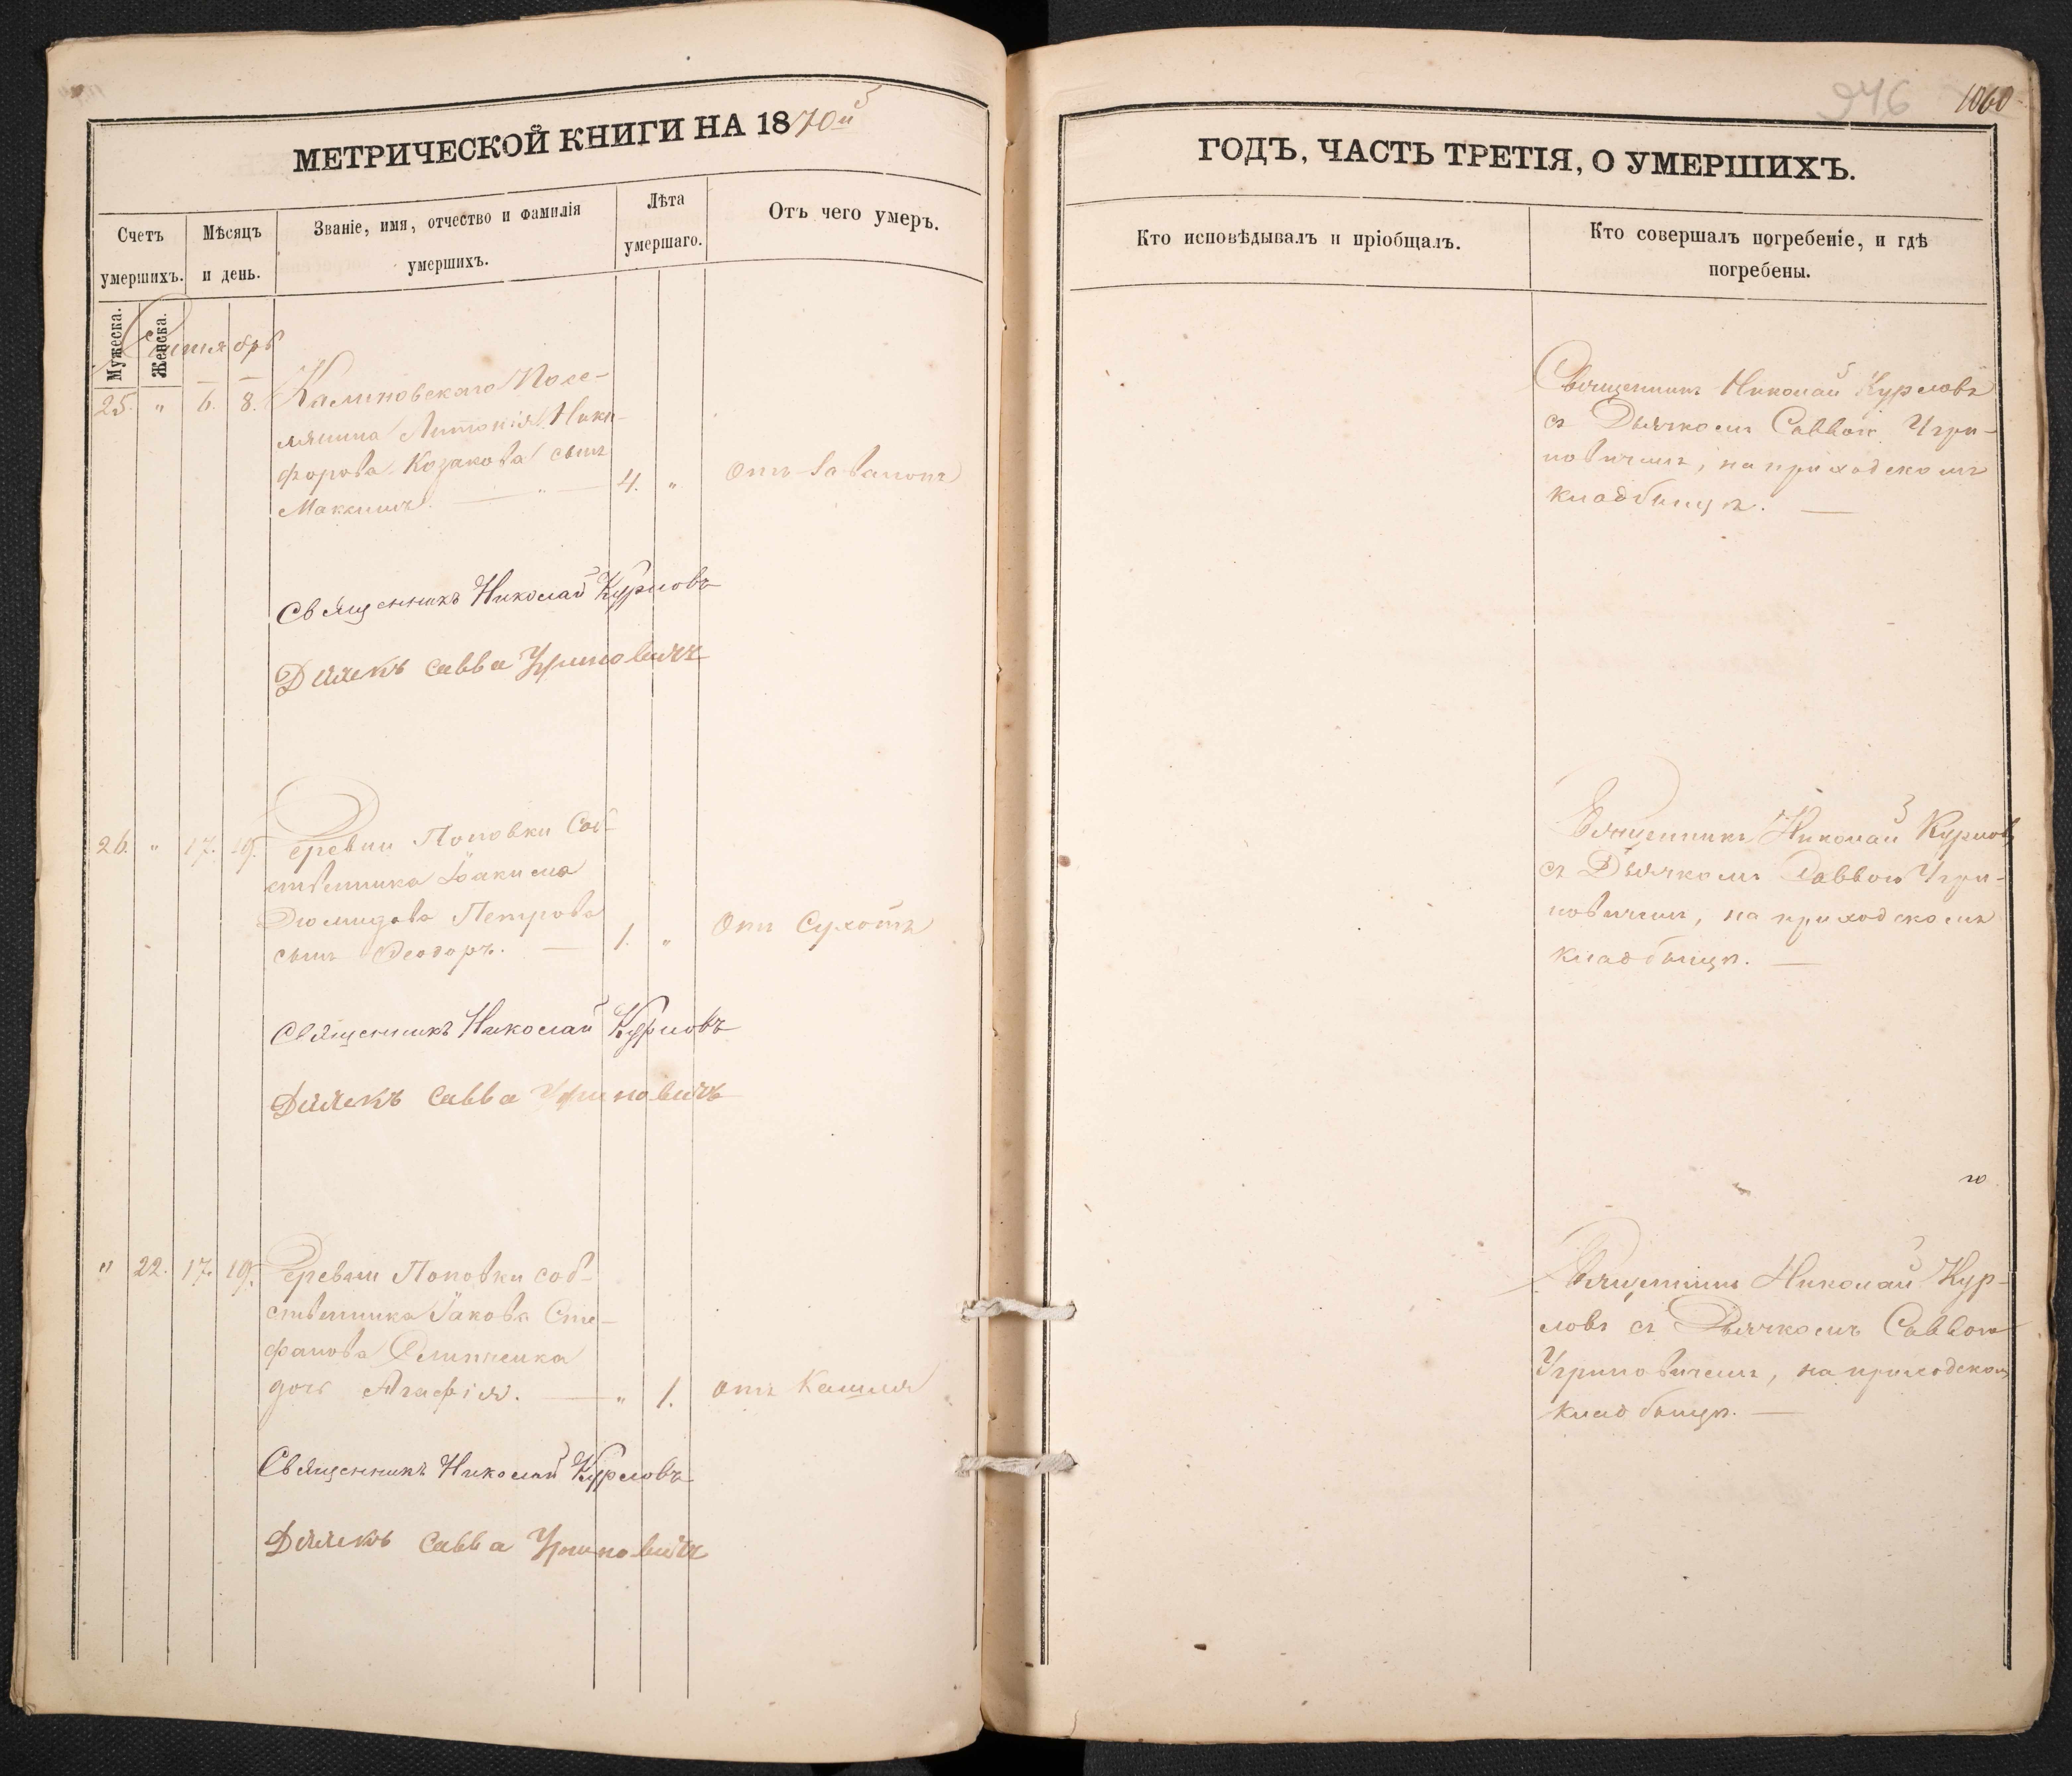 МЕТРИЧЕСКОЙ КНИГИ НА 1870й
Счетъ умершихъ.
Мужеска.
Женска.
Мѣсяцъ и день.
Званіе, имя, отчество и фамилія умершихъ.
Лѣта умершаго.
Отъ чего умеръ.
Сентябрь
25. " 6. 8. Калиновскаго Посе-
лянина Антонія Ники-
форова Козакова сынъ
Максимъ. — " — 4. "
Священникъ Николай Курловъ
Дьячекъ Савва Угриновичъ
26. " 17. 19. Деревни Поповки Соб-
ственника Іакима
Діомидова Петрова
сынъ Феодоръ. — 1. " Отъ Сухотъ
Священникъ Николай Курловъ
Дьячекъ Савва Угриновичъ
" 22. 17. 19. Деревни Поповки соб-
ственника Іакова Сте-
фанова
дочь Агафія. — " 1. отъ Кашля
Священникъ Николай Курловъ
Дьячекъ Савва Угриновичъ
246 1060
ГОДЪ, ЧАСТЬ ТРЕТІЯ, О УМЕРШИХЪ.
Кто исповѣдывалъ и пріобщалъ.
Кто совершалъ погребеніе, и гдѣ
погребены.
Священникъ Николай Курловъ
съ Дьячкомъ Саввою Угри-
новичемъ, на приходскомъ
кладбищѣ. —
Священникъ Николай Курловъ
съ Дьячкомъ Саввою Угри-
новичемъ, на приходскомъ
кладбищѣ. —
Священникъ Николай Кур-
ловъ съ Дьячкомъ Саввою
Угриновичемъ, на приходском
кладбищѣ. —